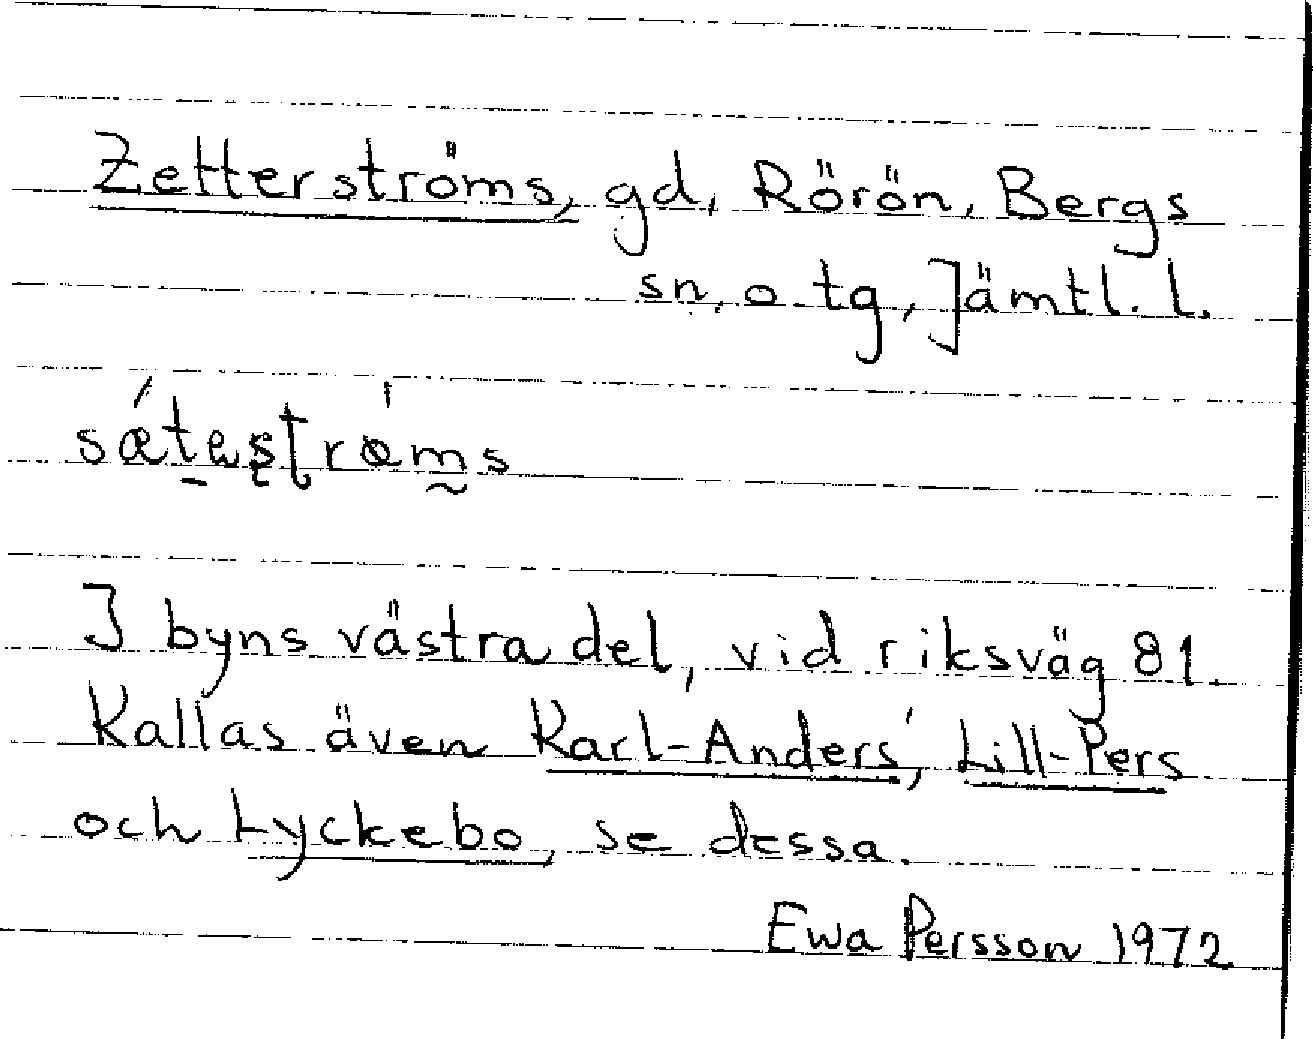 Zetterströms, gd, Rörön, Bergs
sn. o. tg, Jämtl. l.
I byns västra del, vid riksväg 81.
Kallas även Karl-Anders', Lill-Pers
och Lyckebo, se dessa.
Ewa Persson 1972